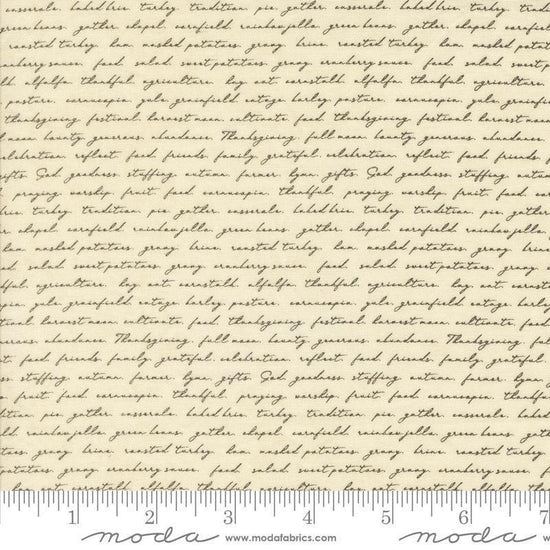 casserole. baked brie. turkey. tradition. pie. gather. casserole. baked brie. turkey. tradit
green beans. gather. chapel. cornfield. rainbow jello. green beans. gather. chapel. cornfiel
roasted turkey. ham. mashed potatoes. gravy. brine. roasted turkey. ham. mashed potat
anberry sauce. food. salad. sweet potatoes. gravy. cranberry sauce. food. salad. sweet p
ld. alfalfa. thankful. agriculture. hay. oat. cornstalk. alfalfa. thankful. agriculture.
pasture. cornucopia. yule. grainfield. cottage. barley. pasture. cornucopia. yule. grainfie
thanksgiving. festival. harvest moon. cultivate. food. thanksgiving. festival. harvest moon
l moon. bounty. generous. abundance. Thanksgiving. full moon. bounty. generous. abundance.
elebration. reflect. food. friends. family. grateful. celebration. reflect. food. friends.
gifts. God. goodness. stuffing. autumn. farmer. hymn. gifts. God. goodness. stuffing. autum
praying. worship. fruit. food. cornucopia. thankful. praying. worship. fruit. food. co
brie. turkey. tradition. pie. gather. casserole. baked brie. turkey. tradition. pie. gather
er. chapel. cornfield. rainbow jello. green beans. gather. chapel. cornfield. rainbow jello.
ham. mashed potatoes. gravy. brine. roasted turkey. ham. mashed potatoes. gravy. brine
od. salad. sweet potatoes. gravy. cranberry sauce. food. salad. sweet potatoes. gravy. c
lfa. thankful. agriculture. hay. oat. cornstalk. alfalfa. thankful. agriculture. hay. oat. cornst
pia. yule. grainfield. cottage. barley. pasture. cornucopia. yule. grainfield. cottage. barley
tival. harvest moon. cultivate. food. thanksgiving. festival. harvest moon. cultivate. food.
nerous. abundance. Thanksgiving. full moon. bounty. generous. abundance. Thanksgiving. ful
t. food. friends. family. grateful. celebration. reflect. food. friends. family. grateful.
ss. stuffing. autumn. farmer. hymn. gifts. God. goodness. stuffing. autumn. farmer. hymn.
p. fruit. food. cornucopia. thankful. praying. worship. fruit. food. cornucopia. thankful.
dition. pie. gather. casserole. baked brie. turkey. tradition. pie. gather. casserole. baked
ld. rainbow jello. green beans. gather. chapel. cornfield. rainbow jello. green beans. gath
toes. gravy. brine. roasted turkey. ham. mashed potatoes. gravy. brine. roasted turke
potatoes. gravy. cranberry sauce. food. salad. sweet potatoes. gravy. cranberry sauce.
hay. oat. cornstalk. alfalfa. thankful. agriculture. hay. oat. cornstalk. alfalfa. than
1 2 3 4 5 6 7
moda www.modafabrics.com moda